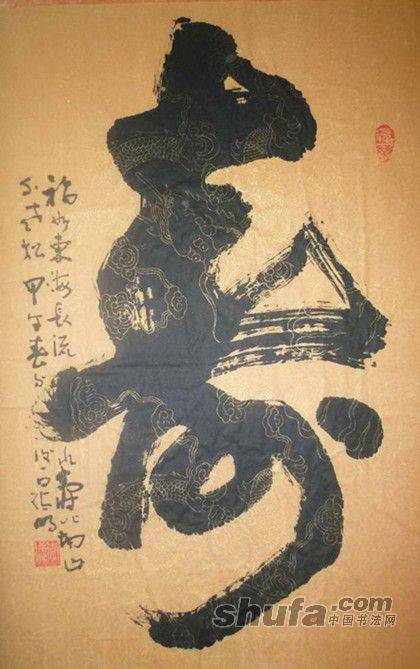 壽
福如東海長流水壽比南山
不老松 甲午春
shufa.com
中国书法网